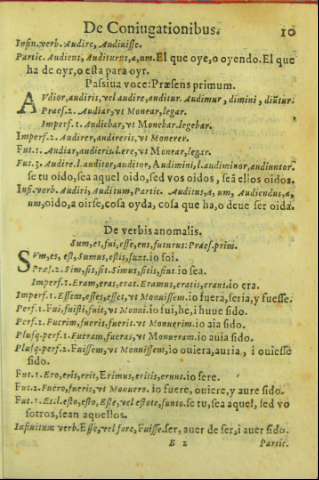 De Coniugationibus. 10
Infin. verb. Audire, Audiuisse.
Partic. Audiens, Auditurus, a, um. El que oye, o oyendo. El que
ha de oyr, o esta para oyr.
Passiua voce: Præsens primum.
AVdior, audiris, vel audire, auditur. Audimur, dimini, diūtur.
Præs. 2. Audiar, vt Monear, legar.
Imperf. 1. Audiebar, vt Monebar, legebar.
Imperf. 2. Audirer, audireris, vt Monerer.
Fut. 1. Audiar, audieris, vt Monear, legar.
Fut. 3. Audire. l. auditor, auditor, Audimini, l. audiminor, audiuntor.
se tu oido, sea aquel oido, sed vos oidos, seā ellos oidos.
Inf. verb. Audiri, Auditum, Partic. Auditus, a, um, Audiendus, a,
um, oido, a oirse, cosa oyda, cosa que ha, o deue ser oida.
De verbis anomalis.
Sum, es, fui, esse, ens, futurus: Præs. prim.
SVm, es, est, Sumus, estis, sunt. io soi.
Præs. 2. Sim, sis, sit. Simus, sitis, sint. io sea.
Imperf. 1. Eram, eras, erat. Eramus, eratis, erant. io era.
Imperf. 2. Essem, esses, esset, vt Monuissem. io fuera, seria, y fuesse.
Perf. 1. Fui, fuisti, fuit, vt Monui. io fui, he, i huue sido.
Perf. 2. Fuerim, fueris, fuerit. vt Monuerim. io aia sido.
Plusq. perf. 1. Fueram, fueras, vt Monueram. io auia sido.
Plusq. perf. 2. Fuissem, vt Monuissem, io ouiera, auria, i ouiesse
sido.
Fut. 1. Ero, eris, erit, Erimus, eritis, erunt. io sere.
Fut. 2. Fuero, fueris, vt Monuero. io fuere, ouiere, y aure sido.
Fut. 3. Es. l. esto, esto, Este, vel estote, sunto. se tu, sea aquel, sed vo
sotros, sean aquellos.
Infinitum verb. Esse, vel fore, Fuisse. ser, auer de ser, i auer sido.
E 2 Partic.